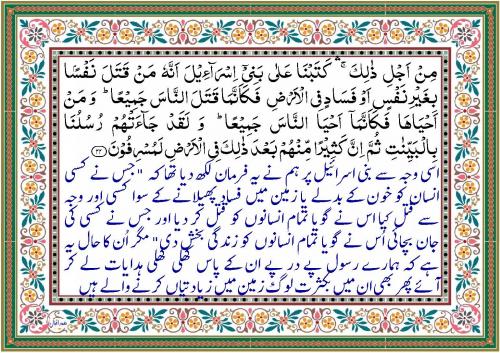 مِنْ اَجْلِ ذٰلِكَ ۛۚ كَتَبْنَا عَلٰى بَنِىْۤ اِسْرَآءِيْلَ اَنَّهٗ مَنْ قَتَلَ نَفْسًۢا
بِغَيْرِ نَفْسٍ اَوْ فَسَادٍ فِى الْاَرْضِ فَكَاَنَّمَا قَتَلَ النَّاسَ جَمِيْعًا ؕ وَ مَنْ
اَحْيَاهَا فَكَاَنَّمَاۤ اَحْيَا النَّاسَ جَمِيْعًا ؕ وَ لَقَدْ جَآءَتْهُمْ رُسُلُنَا
بِالْبَيِّنٰتِ ثُمَّ اِنَّ كَثِيْرًا مِّنْهُمْ بَعْدَ ذٰلِكَ فِى الْاَرْضِ لَمُسْرِفُوْنَ ﴿۳۲﴾
اسی وجہ سے بنی اسرائیل پر ہم نے یہ فرمان لکھ دیا تھا کہ "جس نے کسی
انسان کو خون کے بدلے یا زمین میں فساد پھیلانے کے سوا کسی اور وجہ
سے قتل کیا اس نے گویا تمام انسانوں کو قتل کر دیا اور جس نے کسی کی
جان بچائی اُس نے گویا تمام انسانوں کو زندگی بخش دی" مگر اُن کا حال یہ
ہے کہ ہمارے رسول پے در پے ان کے پاس کھلی کھلی ہدایات لے کر
آئے پھر بھی ان میں بکثرت لوگ زمین میں زیادتیاں کرنے والے ہیں